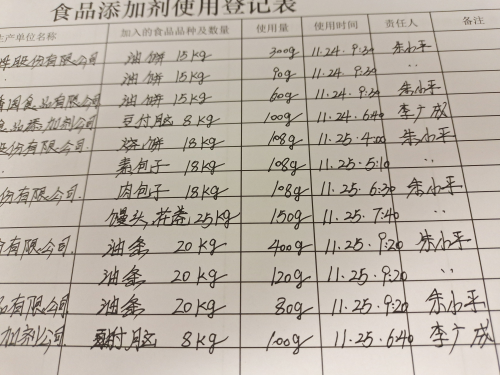 食品添加剂使用登记表
生产单位名称 加入的食品品种及数量 使用量 使用时间 责任人 备注
股份有限公司 油饼 15kg 300g 11.24.9:30 朱小平
油饼 15kg 90g 11.24.9:30 〃
食品有限公司 油饼 15kg 600g 11.24.9:30 朱小平
食品添加剂公司 豆付脑 8kg 100g 11.24.6:40 李广成
股份有限公司 烧饼 18kg 108g 11.25.4:00 朱小平
素包子 18kg 108g 11.25.5:10 〃
份有限公司. 肉包子 18kg 108g 11.25.6:30 朱小平
馒头,花卷 25kg 150g 11.25.7:40 〃
有限公司. 油条 20kg 400g 11.25.9:20 朱小平
油条 20kg 120g 11.25.9:20 〃
品有限公司 油条 20kg 80g 11.25.9:20 朱小平
加剂公司 付脑 8kg 100g 11.25.6:40 李广成